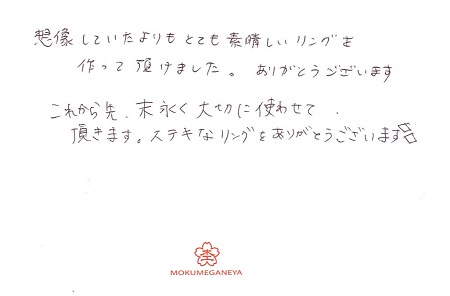 想像していたよりもとても素晴しいリングを
作って頂けました。ありがとうございます
これから先、末永く大切に使わせて
頂きます。ステキなリングをありがとうございます
杢
MOKUMEGANEYA